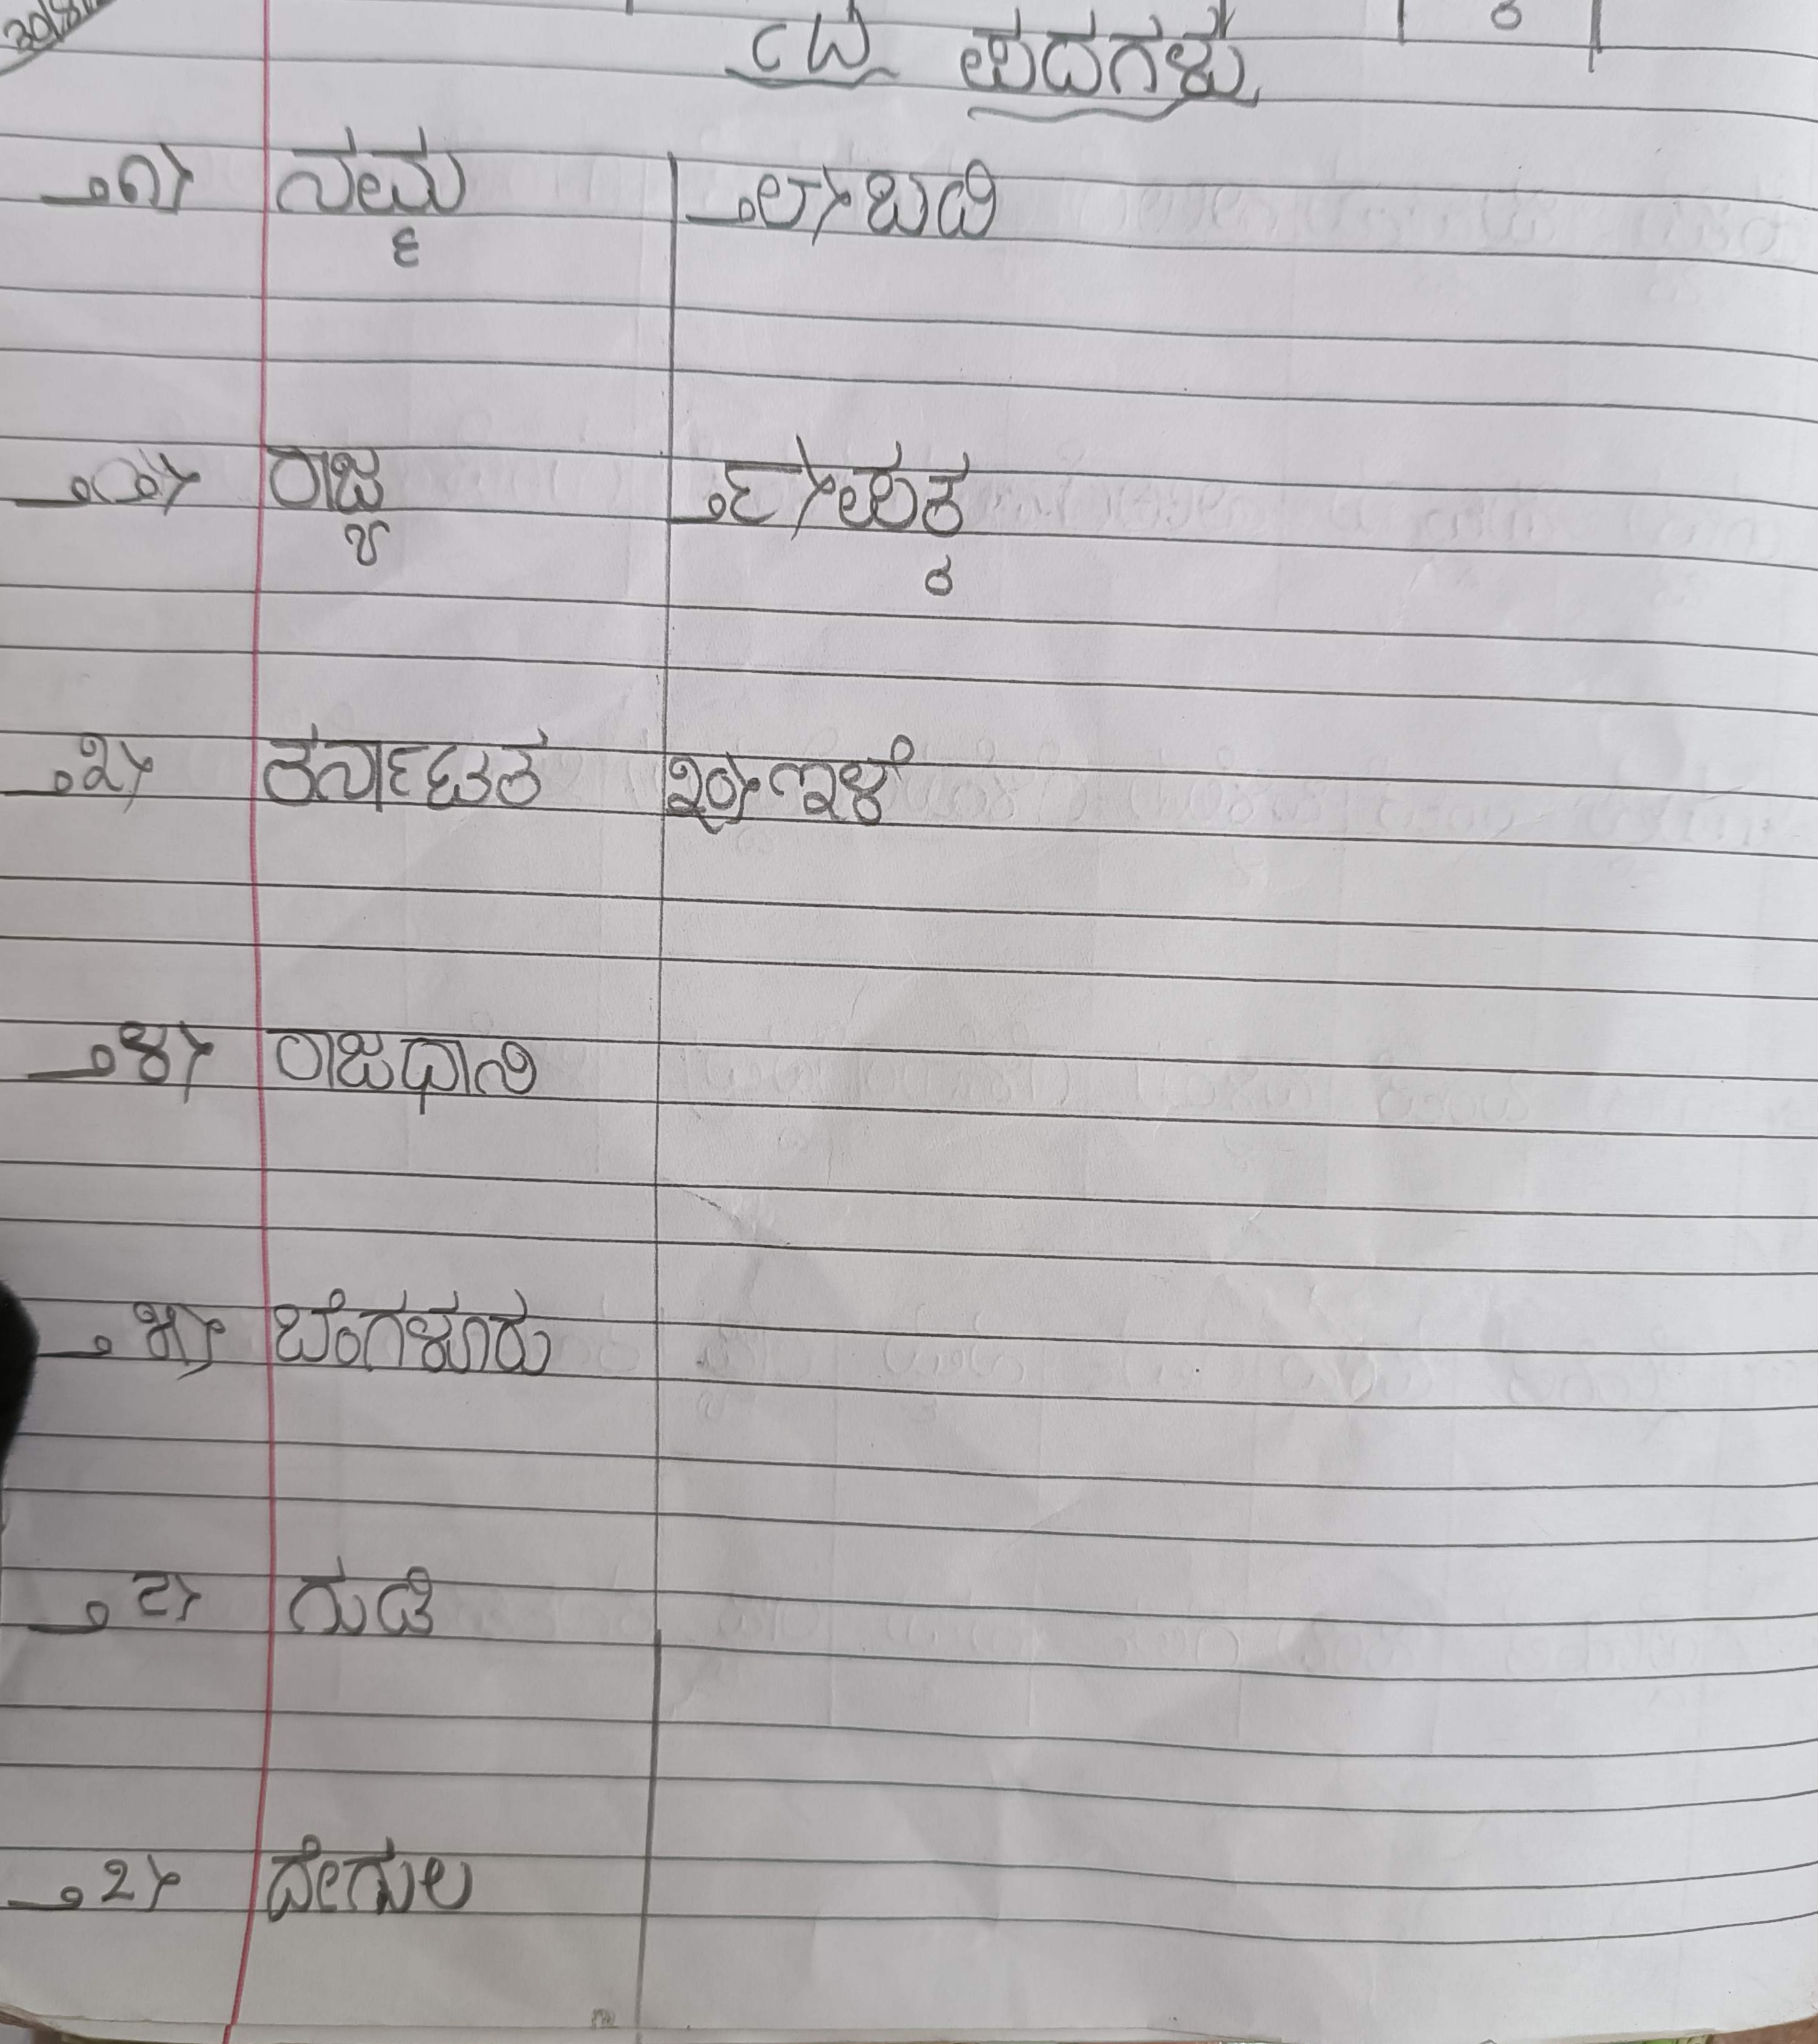 ಪದಗಳು
೧) ನಮ್ಮ ೮) ಬದಿ
೨) ರಾಜ್ಯ ೯) ಪಕ್ಕ
೩) ಕರ್ನಾಟಕ ೧೦) ಇಳೆ
೪) ರಾಜಧಾನಿ
೫) ಬೆಂಗಳೂರು
೬) ಗುಡಿ
೭) ದೇಗುಲ